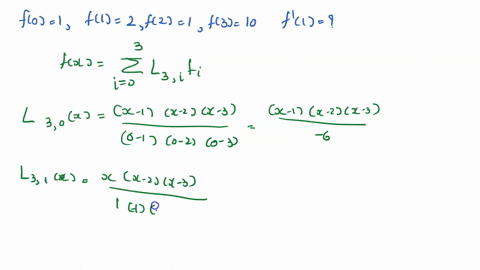 f(0)=1, f(1)=2, f(2)=1, f(3)=10 f'(1)=?
f(x) = 3 Σ i=0 L3,i fi
L3,0(x) = (x-1)(x-2)(x-3) / (0-1)(0-2)(0-3) = (x-1)(x-2)(x-3) / -6
L3,1(x) = x(x-2)(x-3) / 1(-1)(